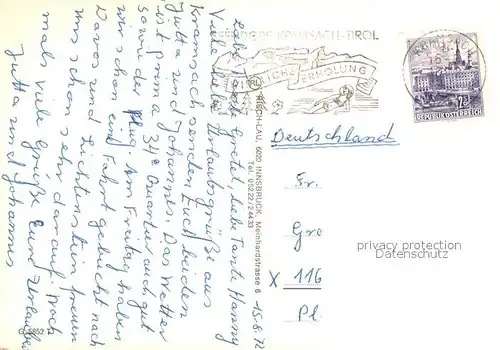 SEENDORF KRAMSACH-TIROL
FRÖHLICHE ERHOLUNG
KRAMSACH
REPUBLIK ÖSTERREICH
Liebe Tante Gretel, liebe Tante Hanny
Viele liebe Urlaubsgrüße aus
Kramsach senden Euch beiden
Jutta und Johannes. Das Wetter
ist prima 34° Quartier auch gut
sowie der Flug. Am Freitag haben
wir schon eine Fahrt gebucht nach
Davos und Lichtenstein freuen
uns schon sehr darauf. Noch
mals viele Grüße Eure Urlauber
Jutta und Johannes
15.8.72
RISCH-LAU, 6020 INNSBRUCK, Meinhardstrasse 6
Tel. 05222/24433
G 5852
Deutschland
Fr.
Gre
X 116
Pl
privacy protection
Datenschutz